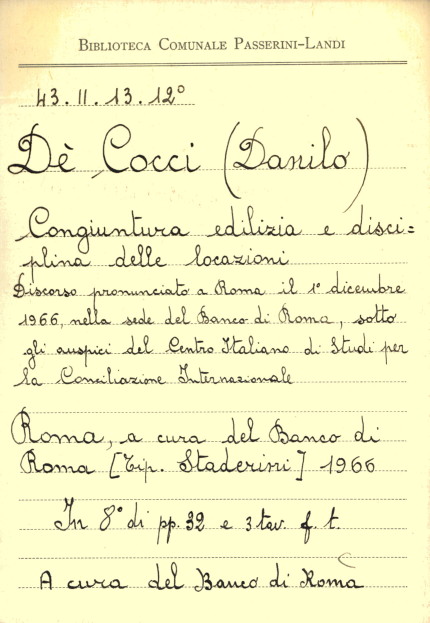 BIBLIOTECA COMUNALE PASSERINI-LANDI
43.II.13.12°
Dè Cocci (Danilo)
Congiuntura edilizia e disci=
plina delle locazioni
Discorso pronunciato a Roma il 1° dicembre
1966, nella sede del Banco di Roma, sotto
gli auspici del Centro Italiano di Studi per
la Conciliazione Internazionale
Roma, a cura del Banco di
Roma [Tip. Staderini] 1966
In 8° di pp. 32 e 3 tav. f. t.
A cura del Banco di Roma